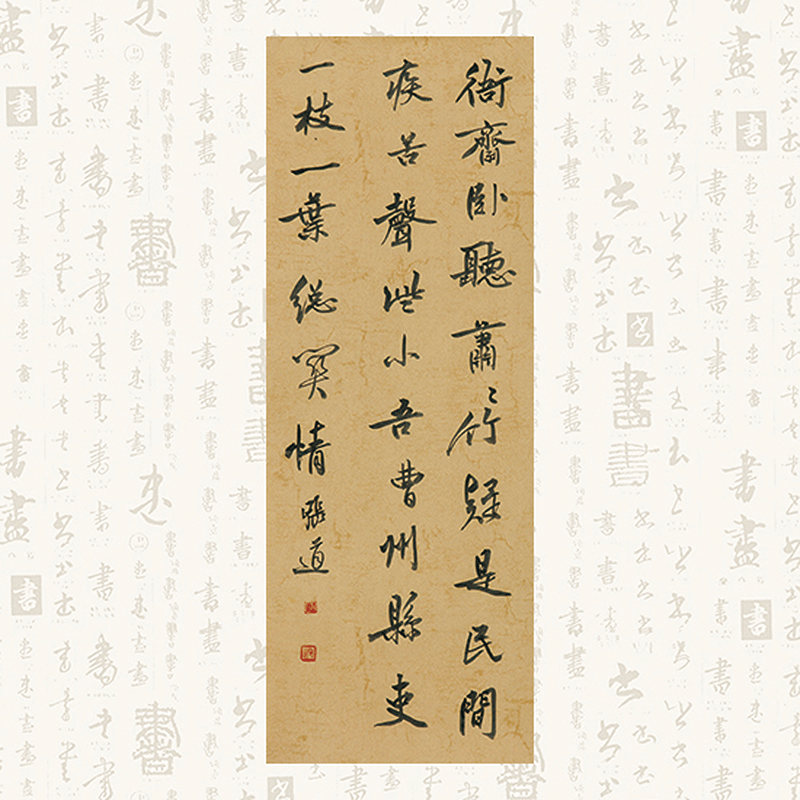 衙齋卧聽蕭〻竹疑是民間
疾苦聲些小吾曹州縣吏
一枝一葉總關情張道